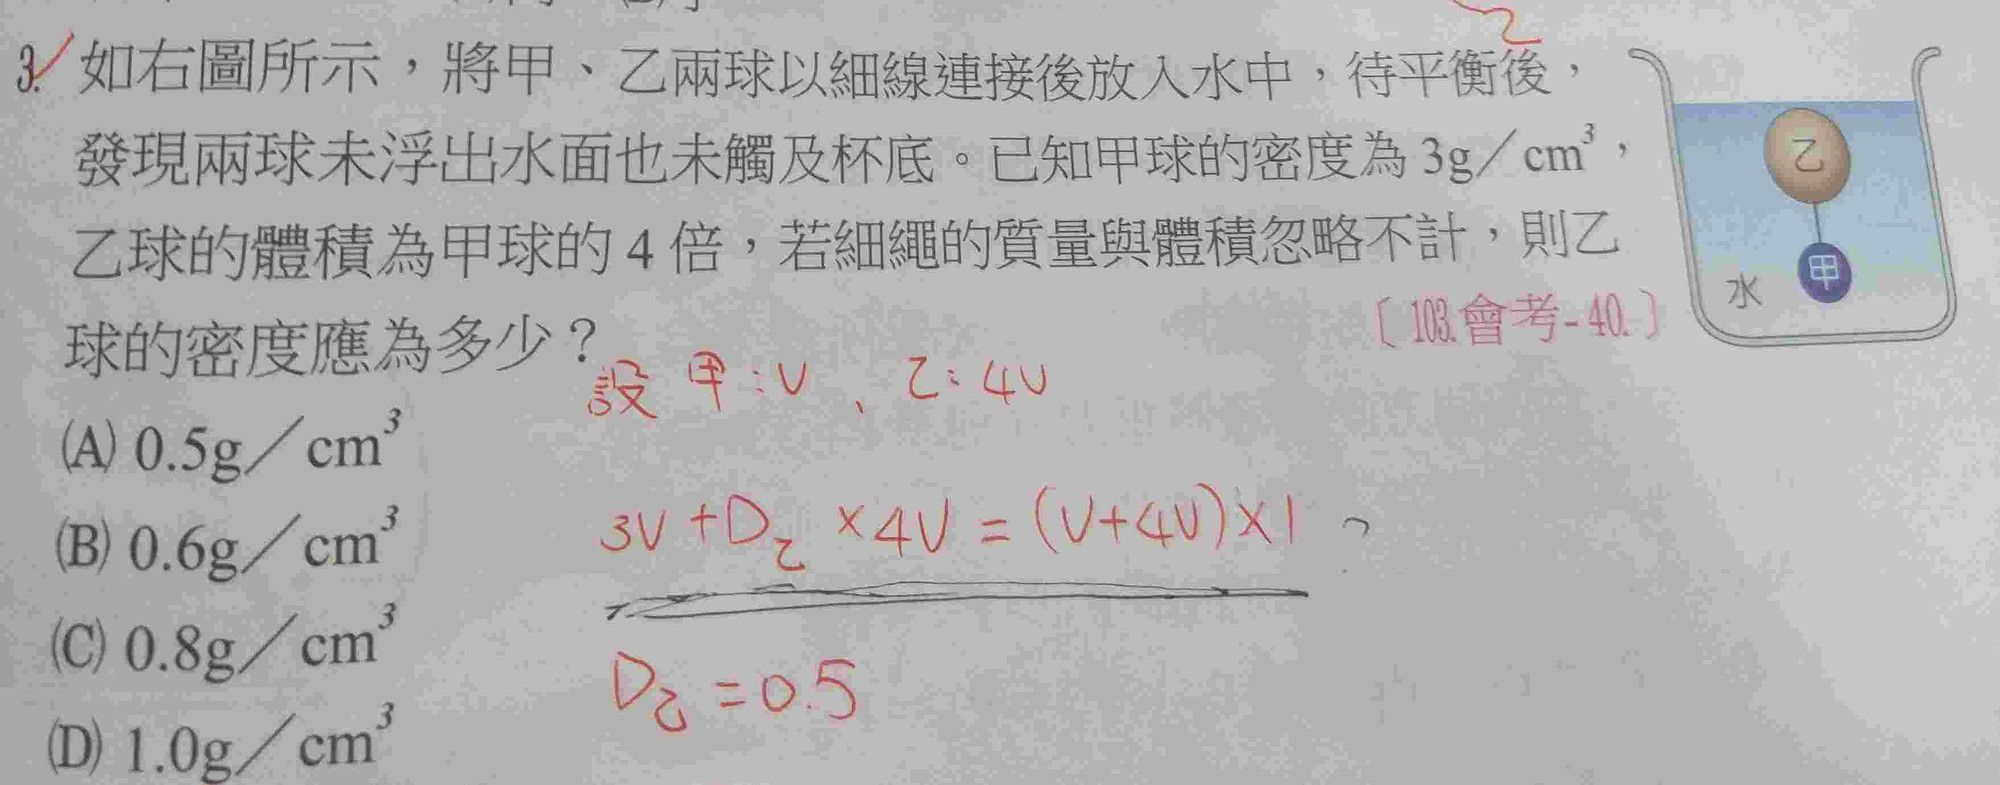 3. 如右圖所示，將甲、乙兩球以細線連接後放入水中，待平衡後，
發現兩球未浮出水面也未觸及杯底。已知甲球的密度為 3g／cm³，
乙球的體積為甲球的 4 倍，若細繩的質量與體積忽略不計，則乙
球的密度應為多少？
〔103.會考-40.〕
乙
甲
水
設 甲：V、乙：4V
(A) 0.5g／cm³
(B) 0.6g／cm³
(C) 0.8g／cm³
(D) 1.0g／cm³
3V+D乙×4V=(V+4V)×1
D乙=0.5